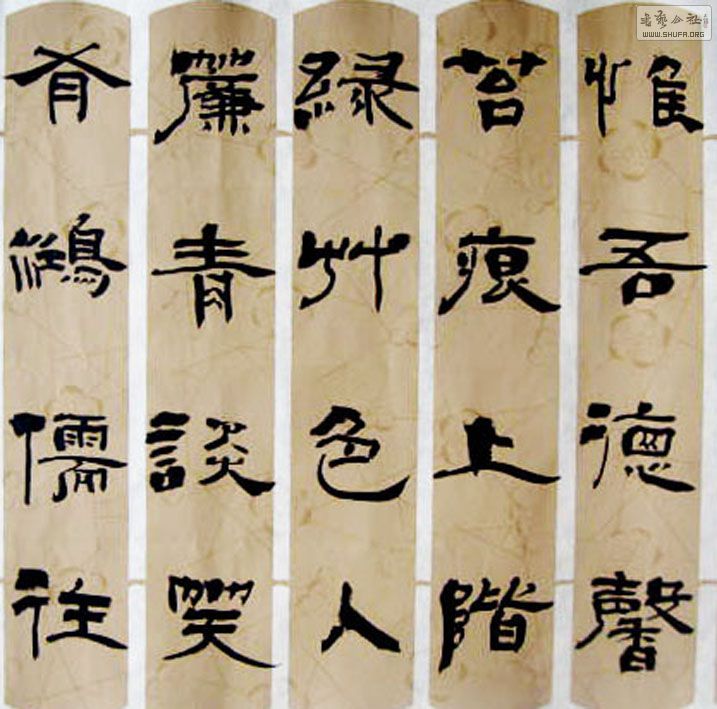 惟吾德馨
苔痕上階
緑艸色人
簾青談笑
有鴻儒往
书艺公社
WWW.SHUFA.ORG